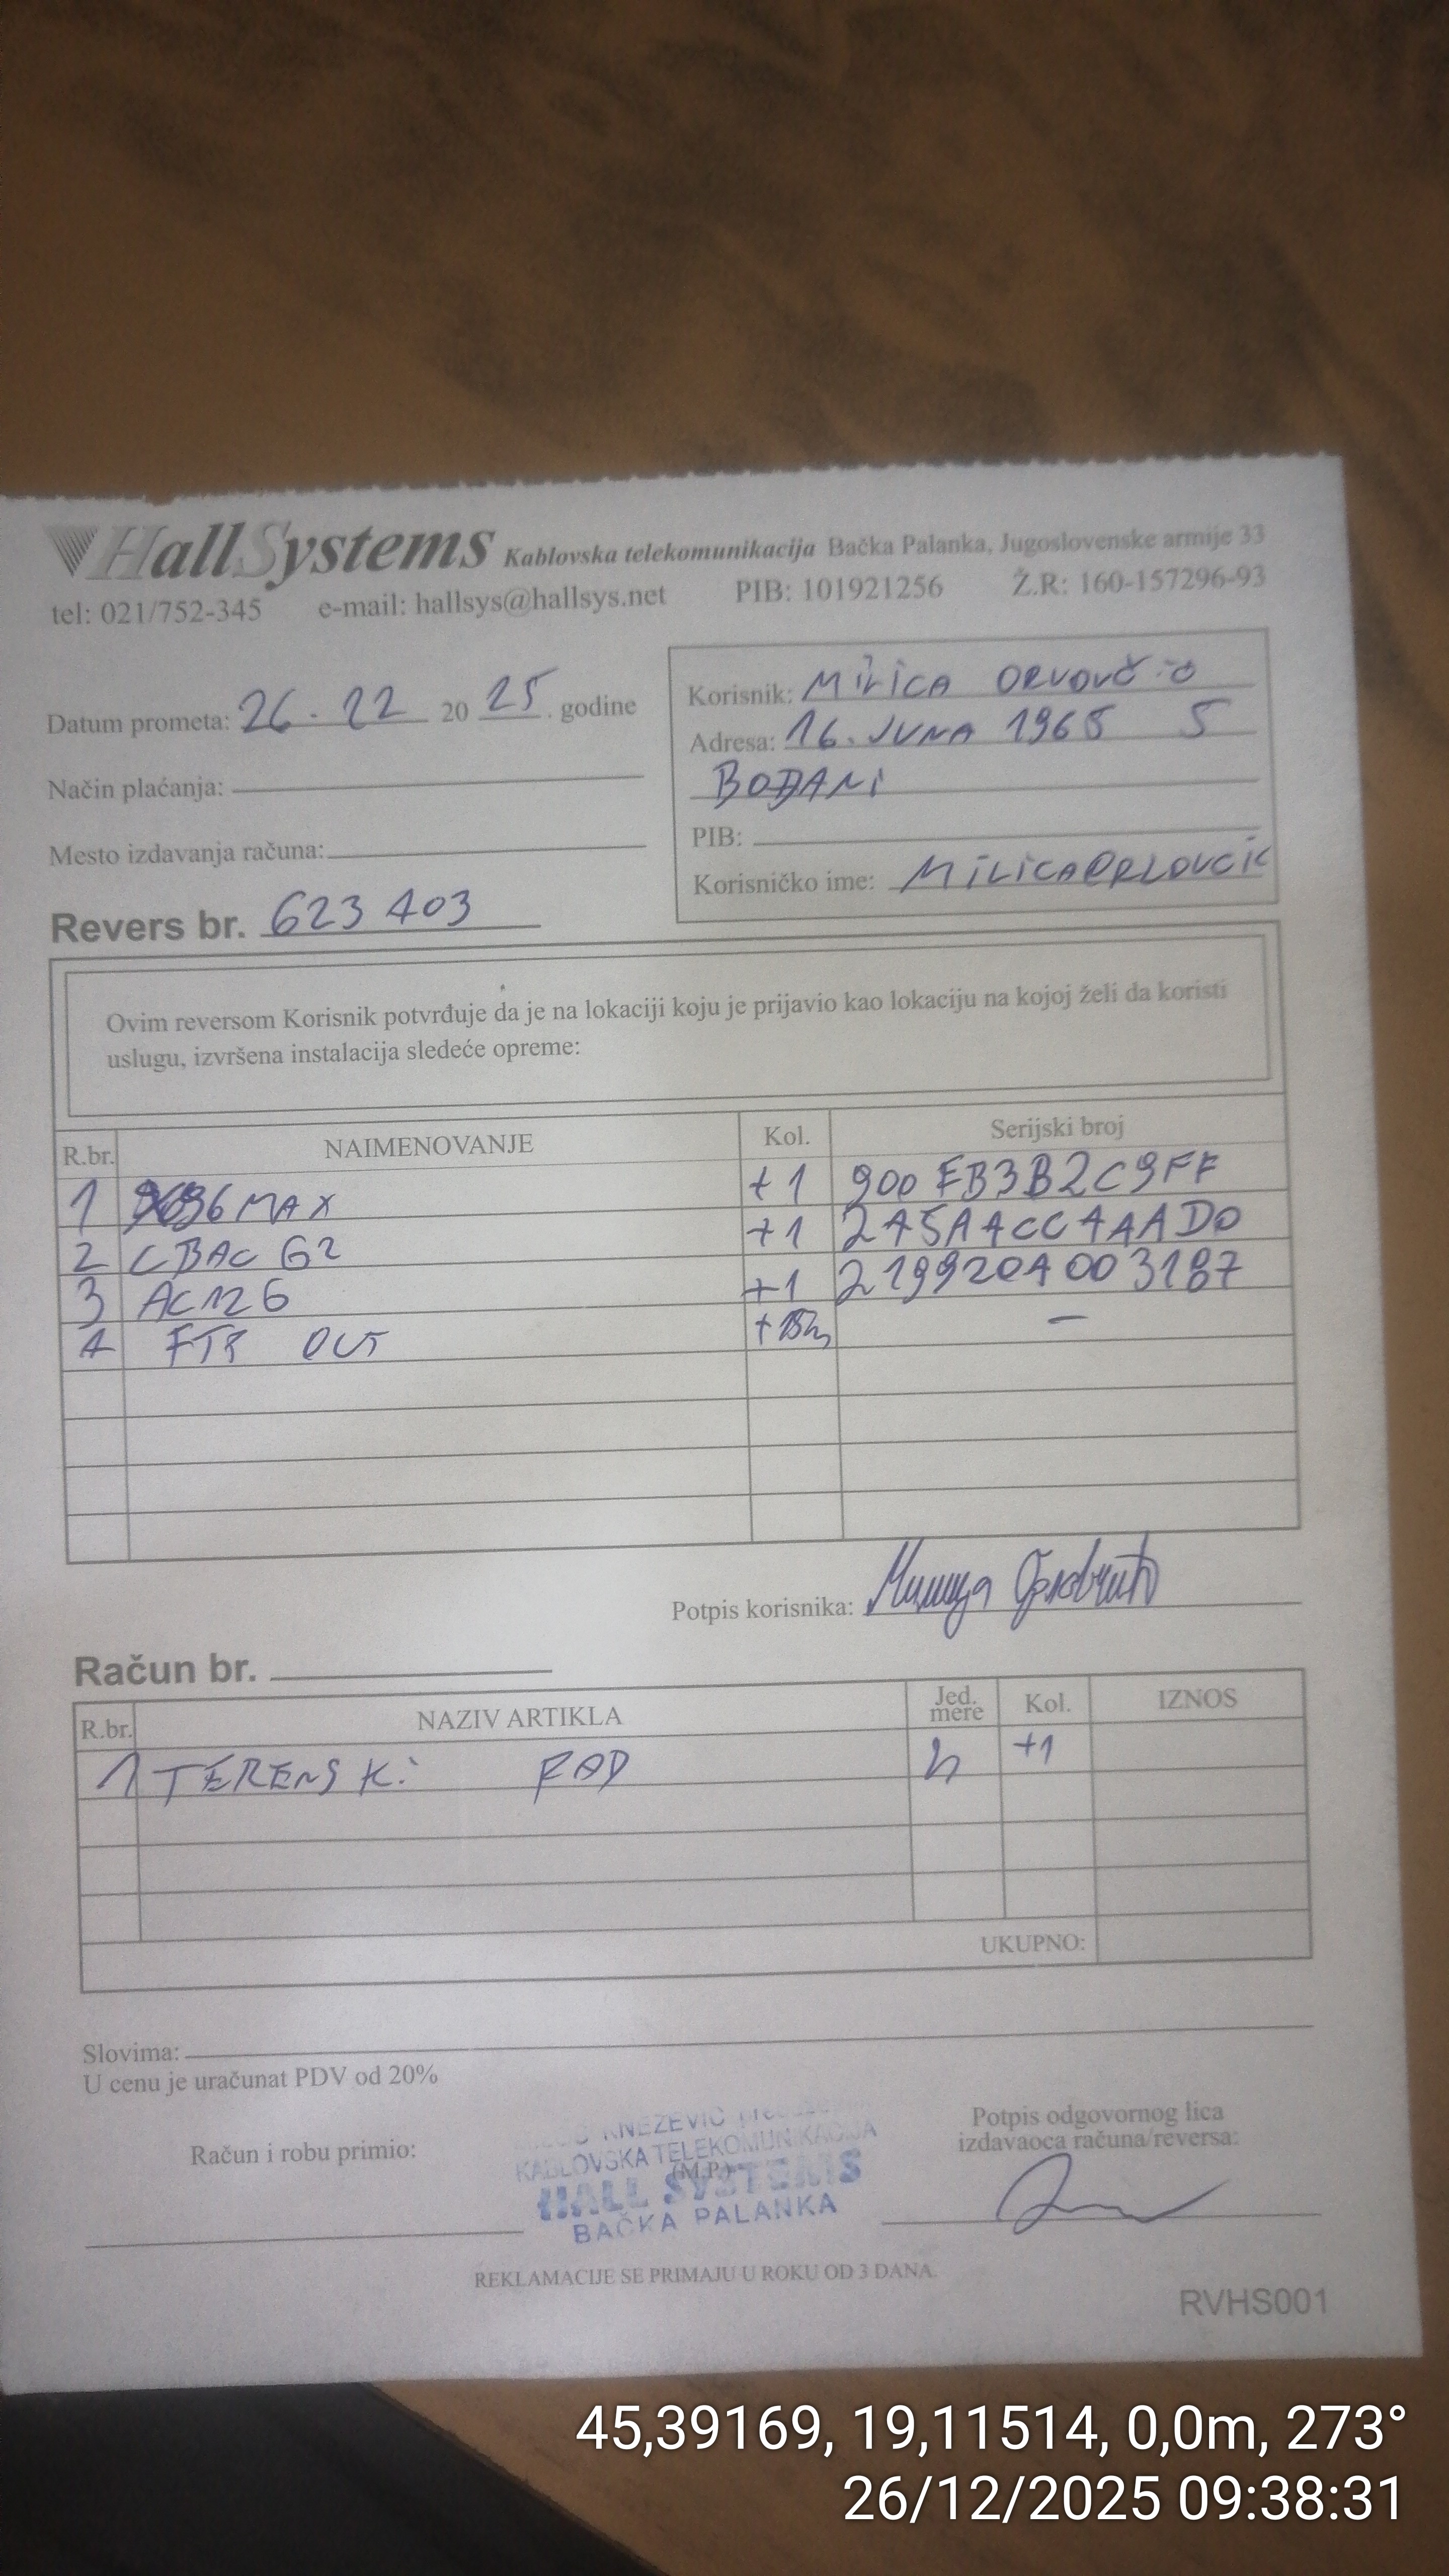 HallSystems Kablovska telekomunikacija Bačka Palanka, Jugoslovenske armije 33
tel: 021/752-345 e-mail: hallsys@hallsys.net PIB: 101921256 Ž.R: 160-157296-93
Datum prometa: 26. 12 20 25. godine
Način plaćanja:
Mesto izdavanja računa:
Revers br. 623 403
Korisnik: MILICA
Adresa: 16. JUNA 1965 5
BOĐANI
PIB:
Korisničko ime: MILICAORLOVCIC
Ovim reversom Korisnik potvrđuje da je na lokaciji koju je prijavio kao lokaciju na kojoj želi da koristi
uslugu, izvršena instalacija sledeće opreme:
R.br. NAIMENOVANJE Kol. Serijski broj
1 96MAX +1 900EB3B2C9FF
2 CBAC G2 +1 2A5A4CC4AAD0
3 AC12G +1 2199204003187
4 FTR OUT –
Potpis korisnika:
Račun br.
R.br. NAZIV ARTIKLA Jed. mere Kol. IZNOS
1 TERENSKI RAD h +1
UKUPNO:
Slovima:
U cenu je uračunat PDV od 20%
Račun i robu primio:
KNEZEVIC
KABLOVSKA TELEKOMUNIKACIJA
(M.P.)
HALL SYSTEMS
BAČKA PALANKA
Potpis odgovornog lica
izdavaoca računa/reversa:
REKLAMACIJE SE PRIMAJU U ROKU OD 3 DANA.
RVHS001
45,39169, 19,11514, 0,0m, 273°
26/12/2025 09:38:31